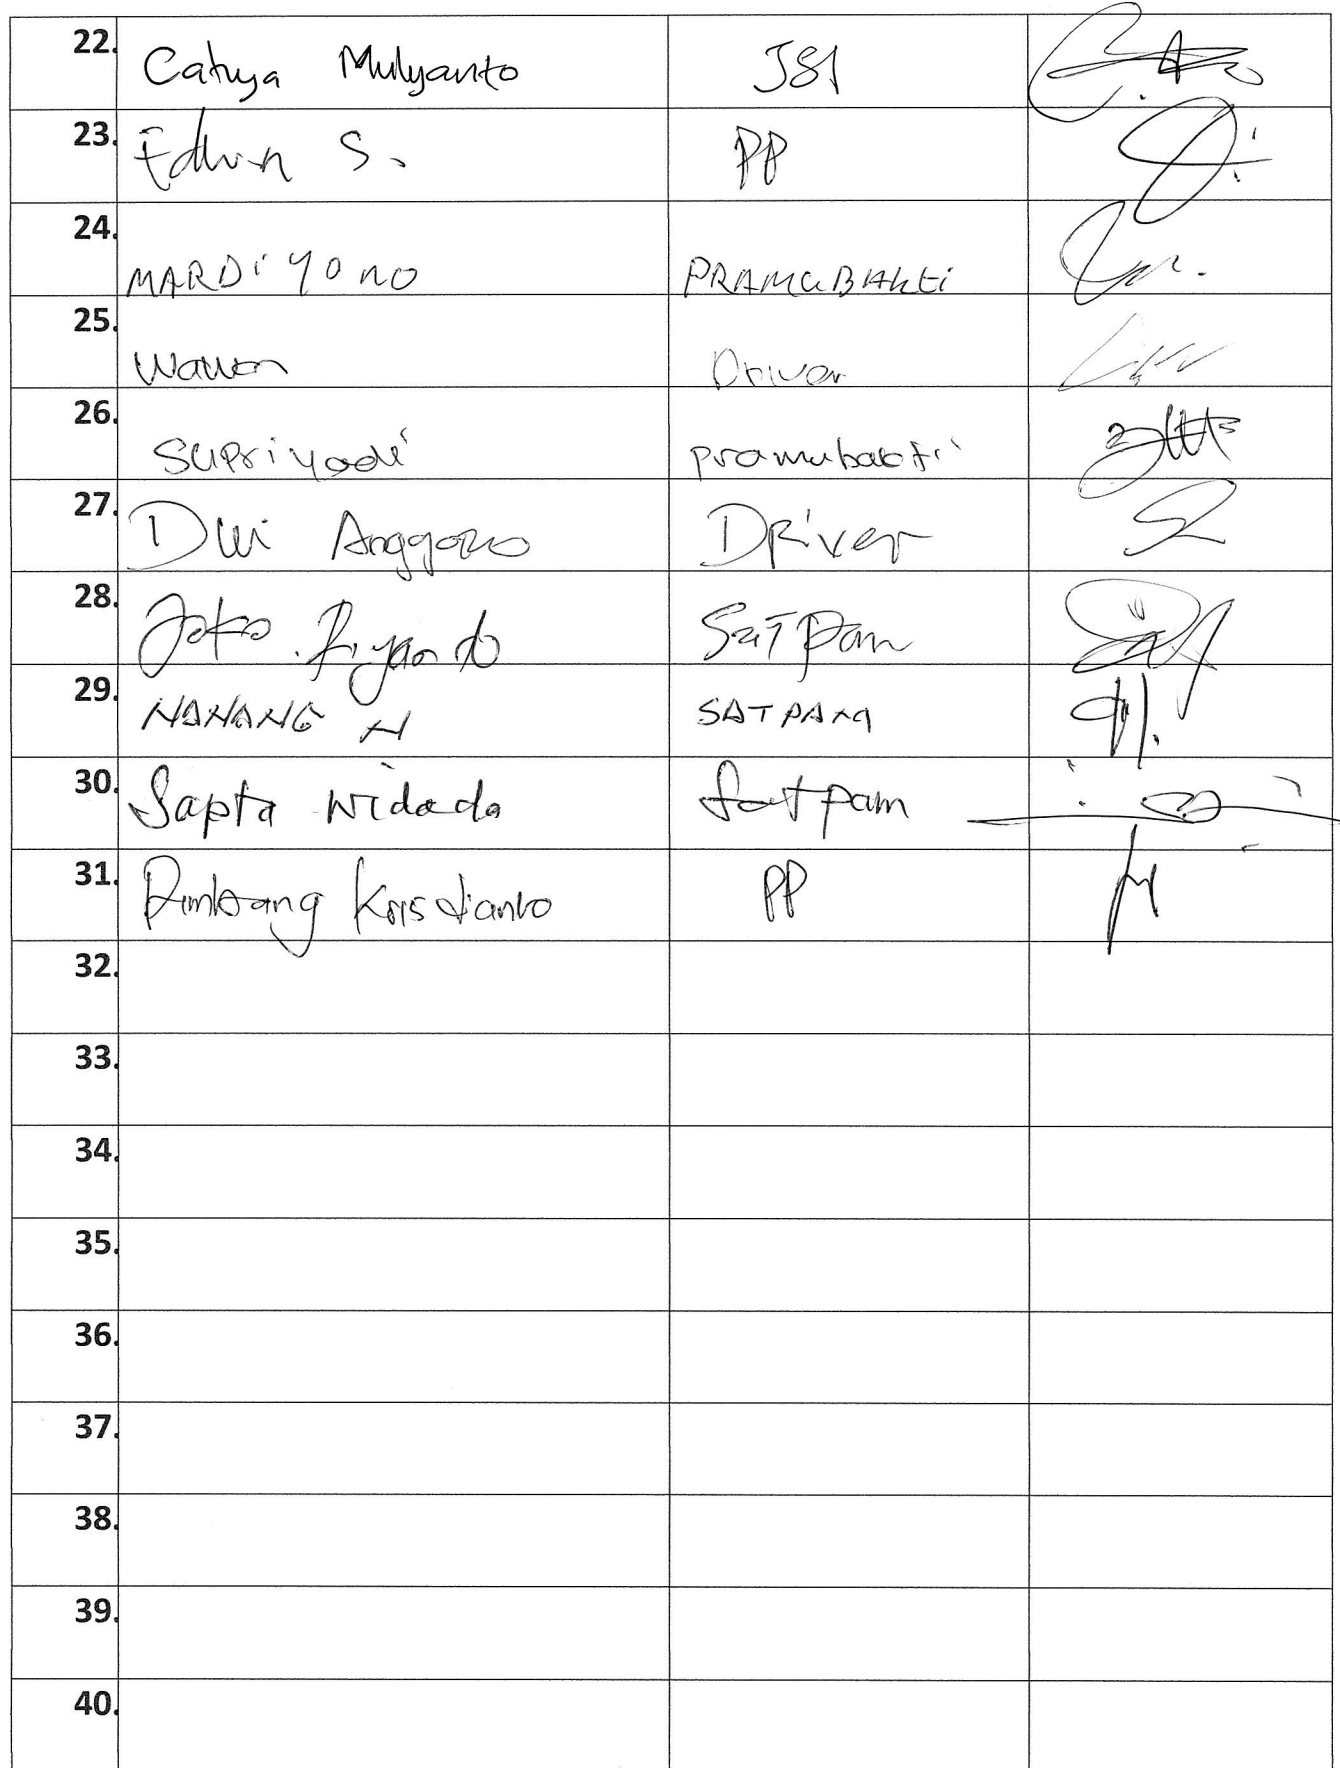 22. Cahya Mulyanto JSI
23. Edwin S. PP
24. MARDiYONO PRAMUBAKti
25. Wawan Driver
26. Supriyadi pramubakti
27. Dwi Anggoro DRiver
28. Joko Riyanto SatPam
29. NANANG N SATPAM
30. Sapta Widada Satpam
31. Bambang Kristianto PP
32.
33.
34.
35.
36.
37.
38.
39.
40.